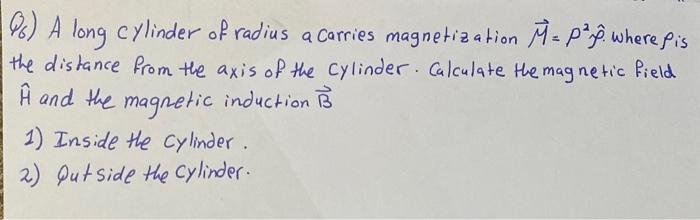 Q6) A long cylinder of radius a carries magnetization M⃗ = ρ² ρ̂. where ρ is
the distance from the axis of the cylinder. Calculate the magnetic field
Ĥ and the magnetic induction B⃗
1) Inside the cylinder.
2) Outside the cylinder.